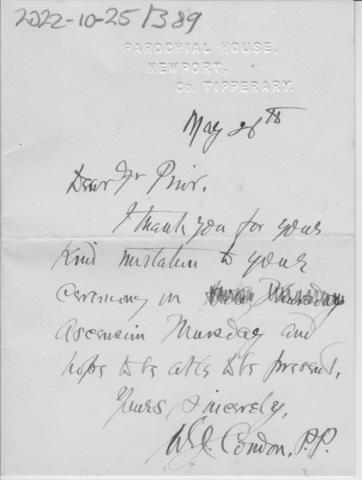 2022-10-25/389
PAROCHIAL HOUSE,
NEWPORT,
Co. TIPPERARY.
May 26th
Dear Fr Prior.
I thank you for your
kind invitation to your
ceremony on Thursday
Ascension Thursday and
hope to be able to be present,
Yours sincerely,
Condon, P.P.